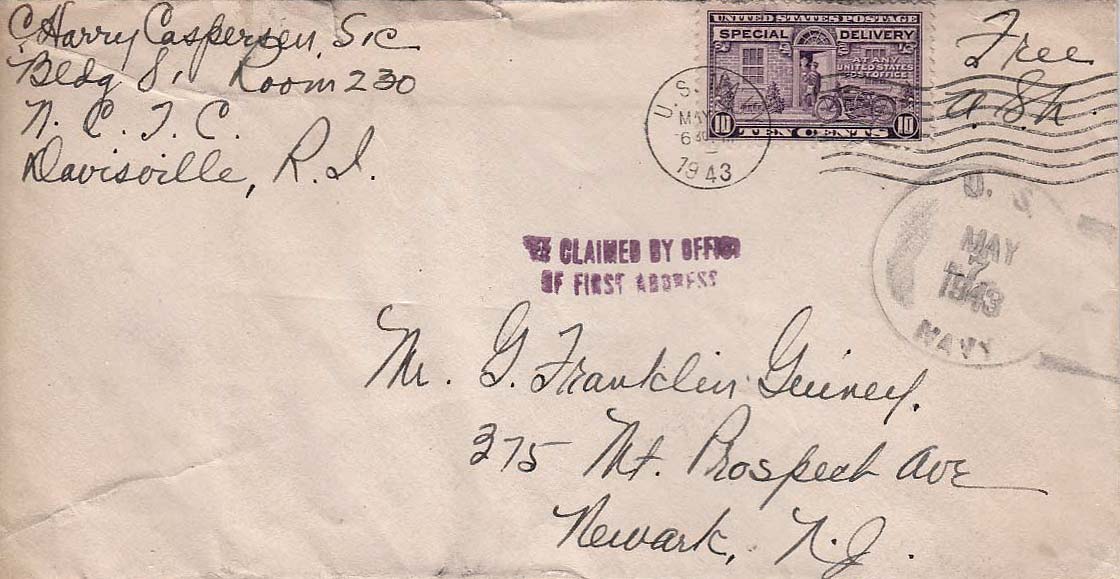 C Harry Caspersen, S1C
Bldg 8, Room 230
N. C. T. C.
Davisville, R. I.
UNITED STATES POSTAGE
SPECIAL DELIVERY
AT ANY
UNITED STATES
POST OFFICE
10 TEN CENTS 10
Free
U.S.
MAY
6
1943
U. S.
MAY
7
1943
NAVY
CLAIMED BY OFFICE
OF FIRST ADDRESS
Mr. G. Franklin Guiney.
375 Mt. Prospect Ave
Newark, N.J.